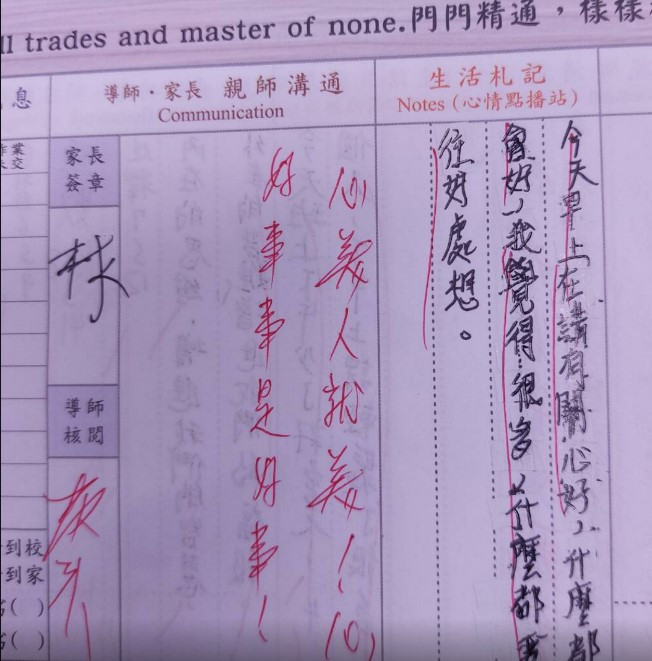 ll trades and master of none.門門精通，樣樣
息
導師．家長 親師溝通
Communication
生活札記
Notes (心情點播站)
業
交
家長
簽章
林
導師
核閱
到校
到家
( )
( )
今天早上在講有關心好，什麼都
會好，我覺得很多人什麼都要
往好處想。
心美人就美！
好事事是好事！